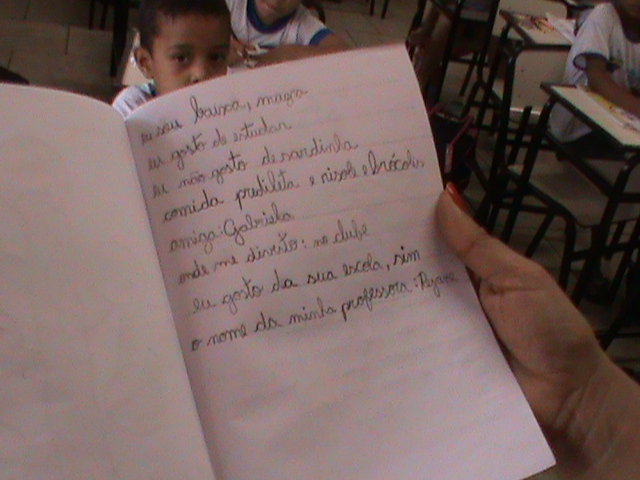 eu sou baixa, magra
eu gosto de estudar
eu não gosto de sardinha
comida predileta e risole e brócolis
amiga: Gabriela
onde me divirto: no clube
eu gosto da sua escola, sim
o nome da minha professora: Rejane